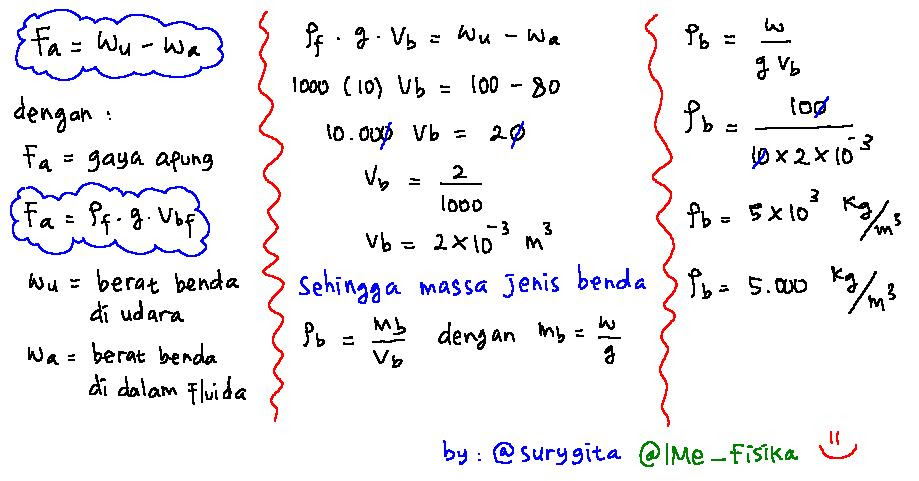 Fa = Wu - Wa
dengan :
Fa = gaya apung
Fa = ρf . g . Vbf
Wu = berat benda
di udara
Wa = berat benda
di dalam fluida
ρf . g . Vb = Wu - Wa
1000 (10) Vb = 100 - 80
10.000 Vb = 20
Vb = 2/1000
Vb = 2 × 10⁻³ m³
Sehingga massa jenis benda
ρb = Mb/Vb dengan mb = W/g
ρb = W/g Vb
ρb = 100/10 × 2 × 10⁻³
ρb = 5 × 10³ Kg/m³
ρb = 5.000 Kg/m³
by : @surygita @IMe_Fisika